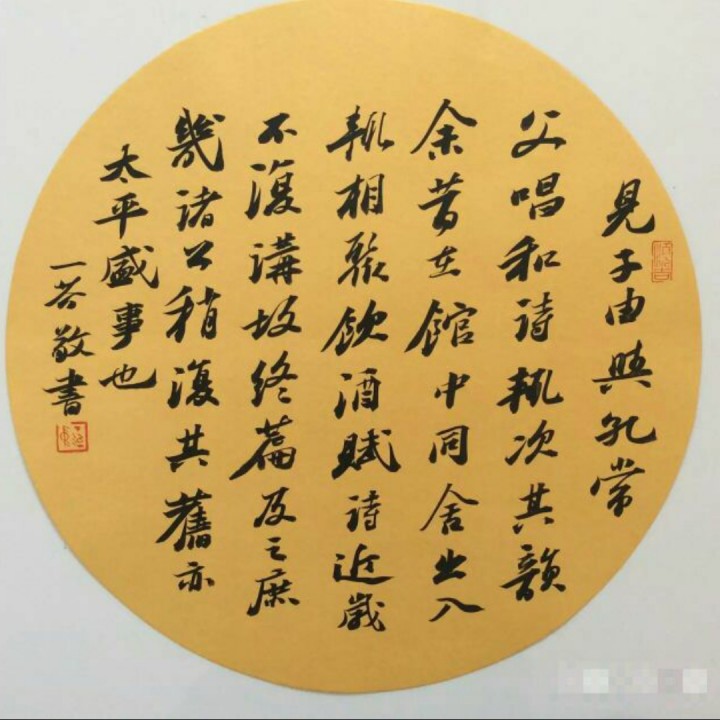 見子由與孔常
父唱和诗輒次其韻
余昔在館中同舍出入
輒相聚飲酒賦诗近歲
不復講故终篇及之庶
幾諸公稍復其舊亦
太平盛事也
一苇敬書